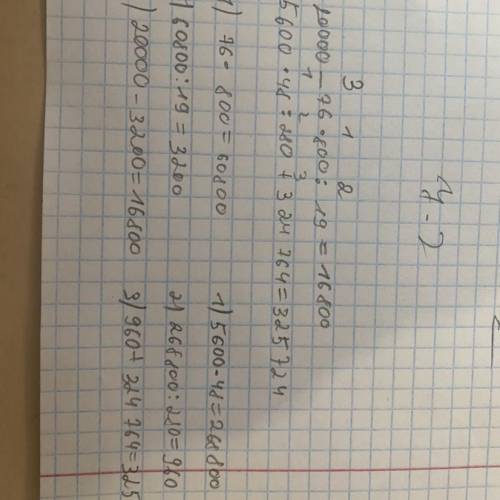 У-2
3 1 2
20000 - 76 · 800 : 19 = 16800
1 2 3
5600 · 48 : 280 + 324 764 = 325724
1) 76 · 800 = 60800
) 60800 : 19 = 3200
) 20000 - 3200 = 16800
1) 5600 · 48 = 268800
2) 268800 : 280 = 960
3) 960 + 324 764 = 325